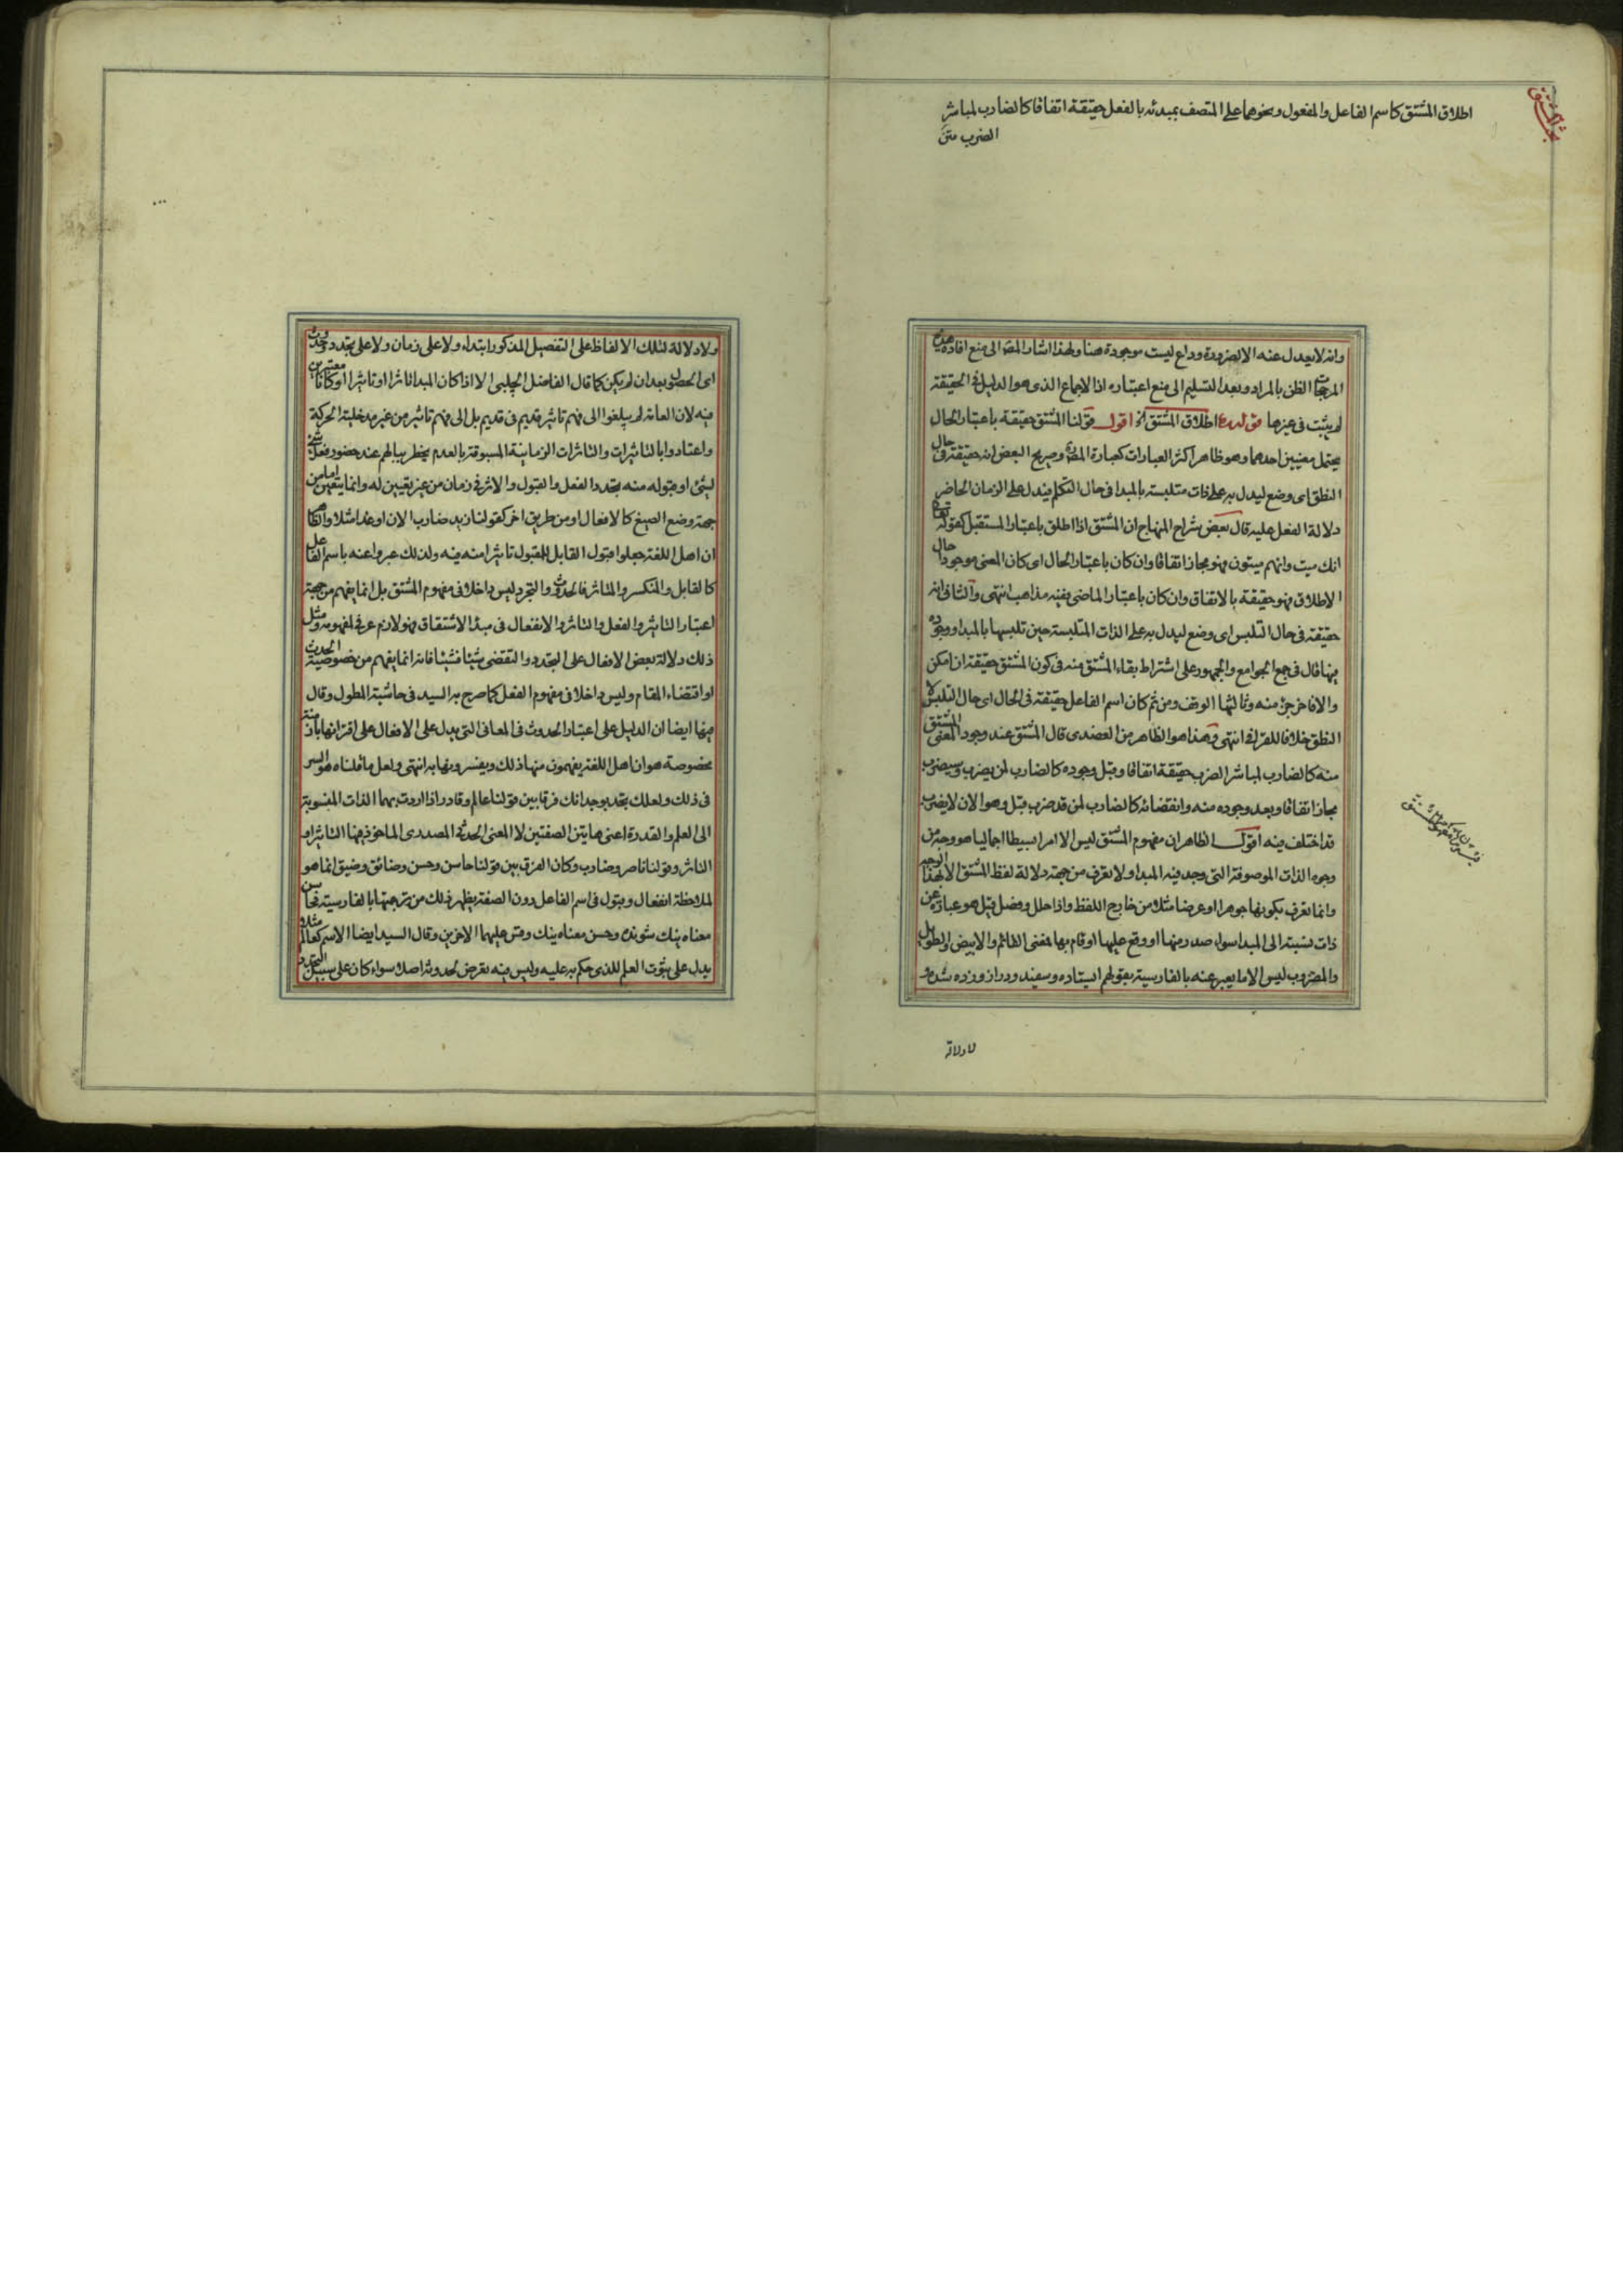 بحث المشتق
اطلاق المشتق كاسم الفاعل والمفعول ونحوهما على المتصف بمبدئه بالفعل حقيقة اتفاقا كالضارب لمباشر
الضرب متن
وانه لا يعدل عنه الا لضرورة وداع ليست موجودة هنا ولهذا اشار المصـ الى منع افادة هذه
المرجحات الظن بالمراد وبعد التسليم الى منع اعتباره اذ الاجماع الذى هو الدليل فى الحقيقة
لم يثبت فى غيرها قوله اطلاق المشتق الخ اقول قولنا المشتق حقيقة باعتبار الحال
يحتمل معنيين احدهما وهو ظاهر اكثر العبارات كعبارة المصـ وصريح البعض انه حقيقة فى حال
النطق اى وضع ليدل به على ذات متلبسة بالمبدا فى حال التكلم فيدل على الزمان الحاضر
دلالة الفعل عليه قال بعض شراح المنهاج ان المشتق اذا اطلق باعتبار المستقبل كقوله تعالى
انك ميت وانهم ميتون فهو مجاز اتفاقا وان كان باعتبار الحال اى كان المعنى موجودا حال
الاطلاق فهو حقيقة بالاتفاق وان كان باعتبار الماضى ففيه مذاهب انتهى والثانى انه
حقيقة فى حال التلبس اى وضع ليدل به على الذات المتلبسة حين تلبسها بالمبدا ووجوده
فيها قال فى جمع الجوامع والجمهور على اشتراط بقاء المشتق منه فى كون المشتق حقيقة ان امكن
والا فاخر جزء منه وثالثها الوقف ومن ثم كان اسم الفاعل حقيقة فى الحال اى حال التلبس لا
النطق خلافا للقرافى انتهى وهذا هو الظاهر من العضدى قال المشتق عند وجود المعنى المشتق
منه كالضارب لمباشر الضرب حقيقة اتفاقا وقبل وجوده كالضارب لمن يضرب وسيضرب
مجاز اتفاقا وبعد وجوده منه وانقضائه كالضارب لمن قد ضرب قبل وهو الان لا يضرب
قد اختلف فيه اقول الظاهر ان مفهوم المشتق ليس الا امرا بسيطا اجماليا هو وجه من
وجوه الذات الموصوفة التى وجد فيه المبدا ولا يعرف من جهة دلالة لفظ المشتق الا بهذا الوجه
وانما تعرف بكونها جوهرا او عرضا مثلا من خارج اللفظ واذا حلل وفصل قيل هو عبارة عن
ذات نسبت الى المبدا سواء صدر منها او وقع عليها او قام بها فمعنى القائم والابيض والطويل
والمضروب ليس الا ما يعبر عنه بالفارسية بقولهم ايستاده وسفيد ودراز وزده شده
لا دلالة
ولا دلالة لتلك الالفاظ على التفصيل المذكور ابتداء ولا على زمان ولا على تجدد وحدوث
اى الحصول بعد ان لم يكن كما قال الفاضل الچلبى الا اذا كان المبدا تاثرا او تاثيرا او كانا معتبرين
فيه لان العامة لم يبلغوا الى فهم تاثير قديم فى قديم بل الى فهم تاثير من غير مدخلية الحركة
واعتادوا بالتاثيرات والتاثرات الزمانية المسبوقة بالعدم يخطر ببالهم عند حضور فعل شئ
لشئ او قبوله منه تجدد الفعل والقبول والاثر فى زمان من غير تعيين له وانما يتعين اما من
جهة وضع الصيغ كالافعال او من طريق اخر كقولنا زيد ضارب الان او غدا مثلا والظاهر
ان اهل اللغة جعلوا قبول القابل للمقبول تاثرا منه فيه ولذلك عبروا عنه باسم الفاعل
كالقابل والمنكسر والمتاثر فالحدوث والتجدد ليس داخلا فى مفهوم المشتق بل انما يفهم من جهة
اعتبار التاثير والفعل والتاثر والانفعال فى مبدا الاشتقاق فهو لازم عرفى لمفهومه ومثل
ذلك دلالة بعض الافعال على التجدد والتقضى شيئا فشيئا فانه انما يفهم من خصوصية الحدث
او اقتضاء المقام وليس داخلا فى مفهوم الفعل كما صرح به السيد فى حاشية المطول وقال
فيها ايضا ان الدليل على اعتبار الحدوث فى المعانى التى يدل على الافعال على اقترانها بازمنة
مخصوصة هو ان اهل اللغة يفهمون منها ذلك ويفسرونها به انتهى ولعل ما قلناه هو السر
فى ذلك ولعلك تجد بوجدانك فرقا بين قولنا عالم وقادر اذا اردت بهما الذات المنسوبة
الى العلم والقدرة اعنى هاتين الصفتين لا المعنى الحدثى المصدرى الماخوذ فيها التاثير او
التاثر وقولنا ناصر وضارب وكان الفرق بين قولنا حاسن وحسن وضائق وضيق انما هو
لملاحظة انفعال وقبول فى اسم الفاعل دون الصفة يظهر ذلك من ترجمتها بالفارسية فحاسن
معناه نيك شونده وحسن معناه نيك وقس عليهما الاخرين وقال السيد ايضا الاسم كعالم مثلا
يدل على ثبوت العلم للذى حكم به عليه وليس فيه تعرض لحدوثه اصلا سواء كان على سبيل التجدد